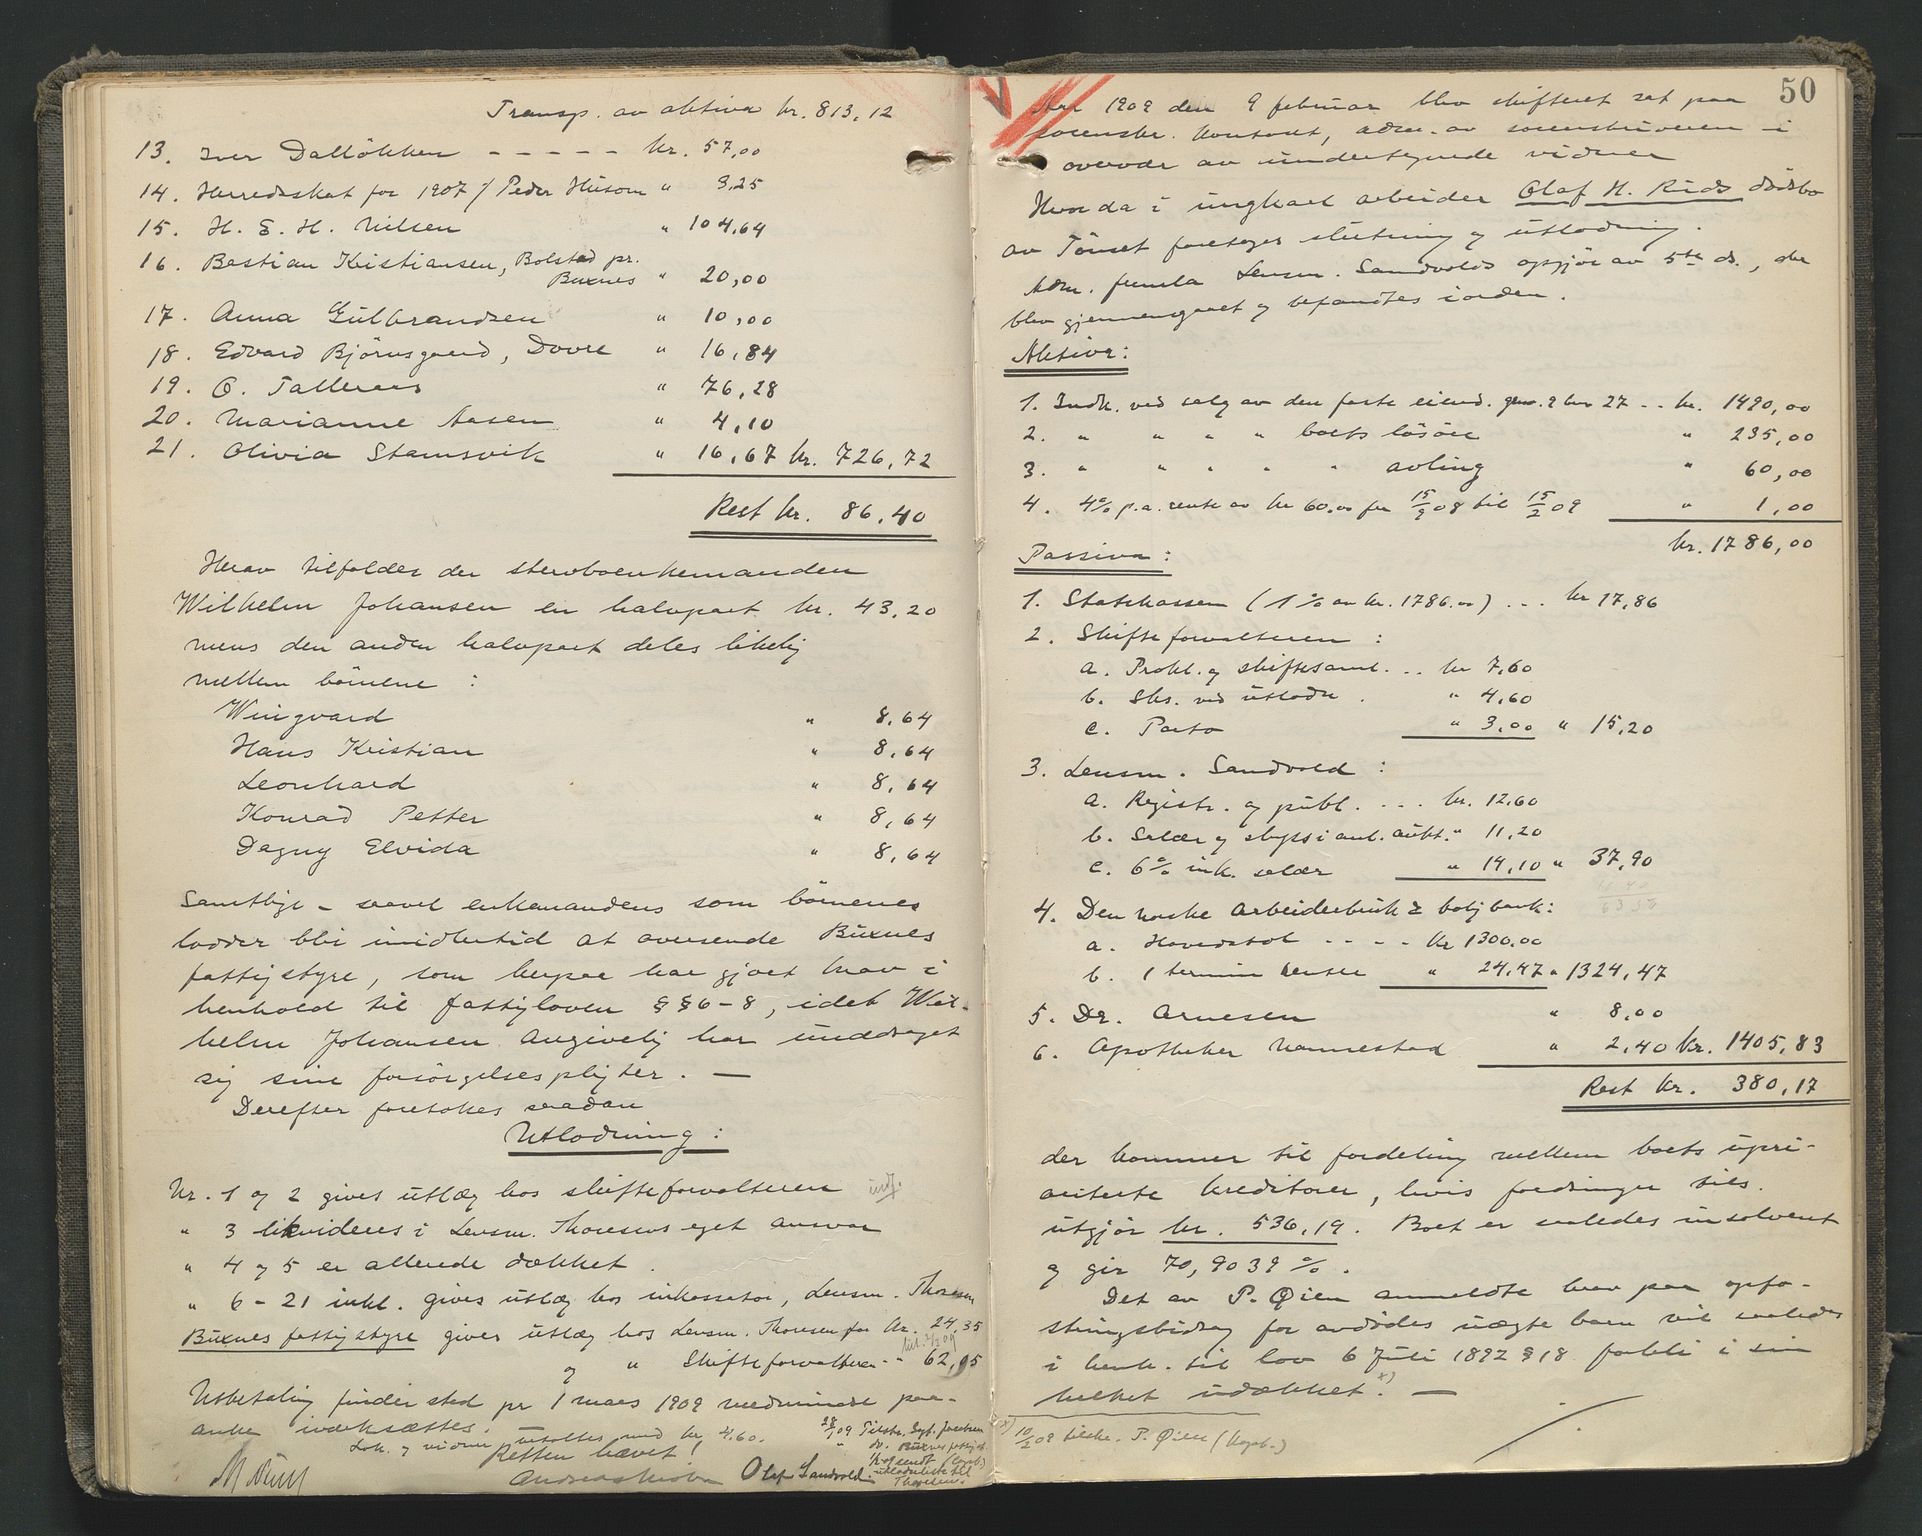 Transp. av aktiva kr. 813,12
13. Iver Dalløkken - - - - - kr. 57,00
14. Herredsskat for 1907 / Peder Husom " 3,25
15. H. E. H. Nilsen " 104,64
16. Bastian Kristiansen, Bolstad pr.
Buxnes " 20,00
17. Anna Gulbrandsen " 10,00
18. Edvard Bjørnsgaard, Dovre " 16,84
19. O. Talleraas " 76,28
20. Marianne Aasen " 4,10
21. Olivia Stamsvik " 16,67 kr. 726,72
Rest kr. 86,40
Herav tilfalder der stervboenkemanden
Wilhelm Johansen en halvpart kr. 43,20
mens den anden halvpart deles likelig
mellem børnene :
Wingvard " 8,64
Hans Kristian " 8,64
Leonhard " 8,64
Konrad Petter " 8,64
Dagny Elvida " 8,64
Samtlige - saavel enkemandens som børnenes
lodder bli imidlertid at oversende Buxnes
fattigstyre, som herpaa har gjort krav i
henhold til fattigloven §§6-8, idet Wil-
helm Johansen angivelig har unddraget
sig sine forsørgelsespligter. —
Derefter foretokes saadan
Utlodning :
Nr. 1 og 2 gives utlæg hos skifteforvalteren
" 3 likvideres i Lensm. Thoresens eget ansvar
" 4 og 5 er allerede dækket.
" 6 - 21 inkl. gives utlæg hos inkassator, Lensm. Thoresen
Buxnes fattigstyre gives utlæg hos Lensm. Thoresen for kr. 24,35
og " Skifteforvalteren - " 62,05
Utbetaling finder sted pr 1 mars 1909 medmindre paa-
anke iverksættes. —
Lok. og vidner utbetales med kr. 4.60.
Retten hævet!
28/1 09 Tilskr. Sygf. foretsen
" do. Buxnes fattigst.
utlodnliste til
Thoresen.
Olaf Sandvold.
50
Aar 1909 den 9 februar blev skifteret sat paa
sorenskr. kontoret, adm. av sorenskriveren i
overvær av undertegnede vidner
Hvorda i ungkarl arbeider Olaf H. Rids dødsbo
av Tønset foretages slutning og utlodning.
Adm. fremla Lensm. Sandvolds opgjør av 5te ds., der
blev gjennemgaaet og befandtes iorden.
Aktiva:
1. Indk. ved salg av den faste eiend. gno. 9 bno 27 .. kr. 1490,00
2. " " " " boets løsøre " 235,00
3. " " " " " avling " 60,00
4. 4% p.a. rente av kr 60.00 fra 15/9 08 til 15/2 09 " 1,00
kr. 1786,00
Passiva :
1. Statskassen (1% av kr. 1786.00) ... kr 17,86
2. Skifteforvalteren :
a. Prokl. og skiftesaml. ... kr 7,60
b. Sks. ved utlodn. " 4,60
c. Porto " 3,00 " 15,20
3. Lensm. Sandvold :
a. Registr. og publ. ... kr. 12,60
b. Salær og skyss i anl. aukt. " 11,20
c. 6% ink. salær " 14,10 " 37,90
4. Den norske Arbeiderbruk & boligbank:
a. Hovedstol - - - - kr 1300.00
b. 1 termin renter " 24,47 " 1324,47
5. Dr. Arnesen " 8,00
6. Apotheker Nannestad " 2,40 kr. 1405,83
Rest kr. 380,17
der kommer til fordeling mellem boets upri-
oriterte kreditorer, hvis fordringer tils.
utgjør kr. 536,19. Boet er saaledes insolvent
og gir 70,9039 %.
Det av P. Øien anmeldte krav paa opfo-
stringsbidrag for avdødes uægte barn vil saaledes
i henh. til lov 6 juli 1892 §18 forbli i sin
helhet udækket. x) —
x) 10/2 09 tilskr. P. Øien (Kopb.)